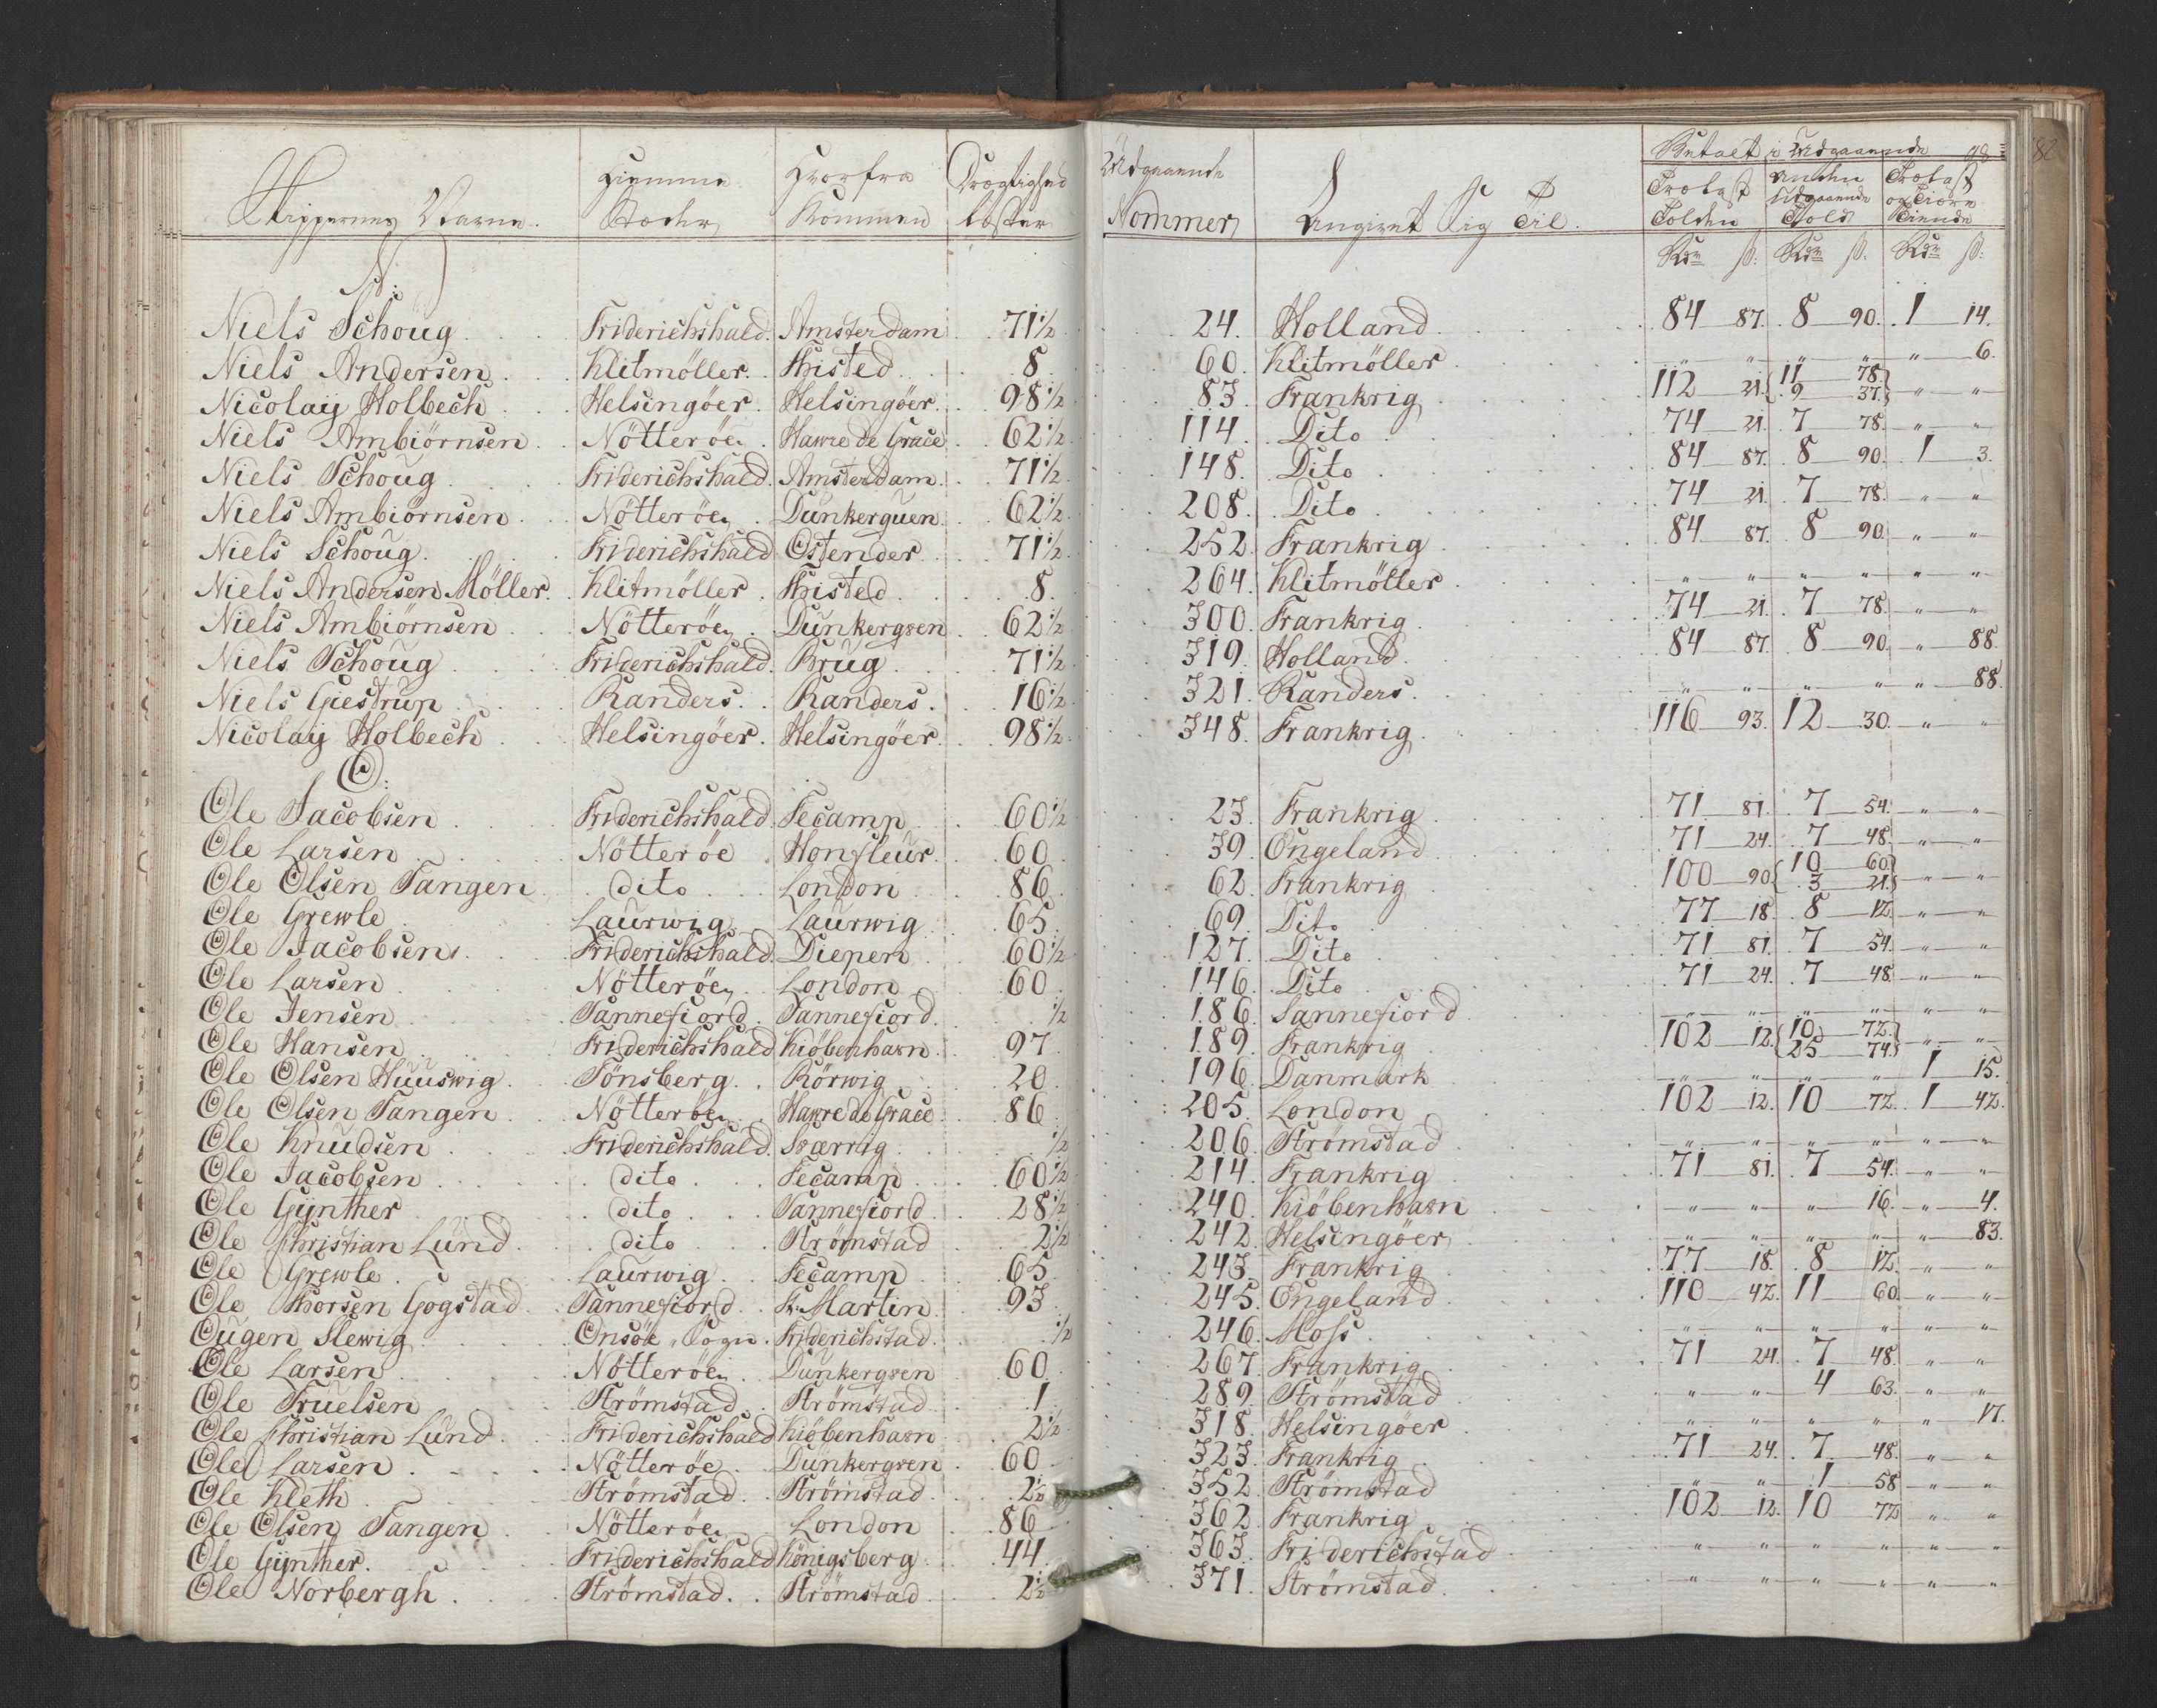 Skippernes Navne. Hiemme Stæder Hvorfra Kommen Drægtighed læster Udgaaende Nommer Angivet Sig Til. Betalt i Udgaaende
Trælast Tolden Anden Udgaaende Told Trælast og Tiære Tiende
Rdr ß: Rdr ß. Rdr ß:
82
N:
Niels Schoug Friderichshald. Amsterdam 71 1/2 24. Holland 84 87. 8 90. 1 14.
Niels Andersen Klitmöller. Thisted 8 60. Klitmöller " " " " " 6.
Nicolaij Holbech Helsingöer. Helsingöer. 98 1/2 83. Frankrig 112 21. { 11 78. 9 37. } " "
Niels Ambiörnsen Nötteröe. Hawre de Grace 62 1/2 114. Dito 74 21. 7 78. " "
Niels Schoug Friderichshald. Amsterdam. 71 1/2 148. Dito 84 87. 8 90. 1 3.
Niels Ambiörnsen Nötteröe. Dunkerquen 62 1/2 208. Dito 74 21. 7 78. " "
Niels Schoug. Friderichshald Ostender 71 1/2 252. Frankrig 84 87. 8 90. " "
Niels Andersen Möller. Klitmöller. Thisted 8. 264. Klitmöller " " " " " "
Niels Ambiörnsen Nötteröe. Dunkergven 62 1/2 300. Frankrig 74 21. 7 78. " "
Niels Schoug Friderichshald. Brug 71 1/2 319. Holland 84 87. 8 90. " 88.
Niels Giestrup Randers. Randers. 16 1/2 321. Randers. " " " " " 88.
Nicolaij Holbech Helsingöer. Helsingöer. 98 1/2 348. Frankrig 116 93. 12 30. " "
O:
Ole Jacobsen Friderichshald. Fecamp 60 1/2 23. Frankrig 71 81. 7 54. " "
Ole Larsen Nötteröe Honfleur. 60 39. Engeland 71 24. 7 48. " "
Ole Olsen Tangen dito London 86 62. Frankrig 100 90. { 10 60. 3 21. } " "
Ole Grewle Laurwig Laurwig 65 69. Dito 77 18. 8 12. " "
Ole Jacobsen Friderichshald. Diepen 60 1/2 127. Dito 71 81. 7 54. " "
Ole Larsen Nötteröe. London 60 146. Dito 71 24. 7 48. " "
Ole Jensen Sannefiord. Sannefiord. 1/2 186. Sannefiord " " " " " "
Ole Hansen Friderichshald Kiöbenhavn. 97 189. Frankrig 102 12. { 10 72. 25 74. } " "
Ole Olsen Huuswig Tönsberg. Rörwig 20 196. Danmark " " " " 1 15.
Ole Olsen Tangen Nötteröe Hawre de Grace 86 205. London 102 12. 10 72. 1 42.
Ole Knudsen Friderichshald. Sværrig 1/2 206. Strömstad " " " " " "
Ole Jacobsen dito Fecamp 60 1/2 214. Frankrig 71 81. 7 54. " "
Ole Gijnther dito Sannefiord 28 1/2 240. Kiöbenhavn " " " 16. " 4.
Ole Christian Lund dito Strömstad 2 1/2 242. Helsingöer " " " " " 83.
Ole Grewle. Laurwig Fecamp 65 243. Frankrig 77 18. 8 12. " "
Ole Thorsen Gogstad Sannefiord. St. Martin 93 245. Engeland 110 42. 11 60. " "
Ougen Slewig Onsöe Sogn. Friderichstad 1/2 246. Moss. " " " " " "
Ole Larsen Nötteröe. Dunkergven 60 267. Frankrig 71 24. 7 48. " "
Ole Truelsen Strömstad. Strömstad 1 289. Strömstad " " 4 63. " "
Ole Christian Lund Friderichshald Kiöbenhavn 2 1/2 318. Helsingöer " " " " " 17.
Ole Larsen Nötteröe Dunkergven 60 323. Frankrig 71 24. 7 48. " "
Ole Kleth Strömstad. Strömstad. 2 1/2 352. Strömstad " " 1 58. " "
Ole Olsen Tangen Nötteröe. London 86 362. Frankrig 102 12. 10 72. " "
Ole Gijnther. Friderichshald Königsberg 44. 363. Friderichstad " " " " " "
Ole Norbergh Strömstad. Strömstad 2 1/2 371. Strömstad. " " " " " "